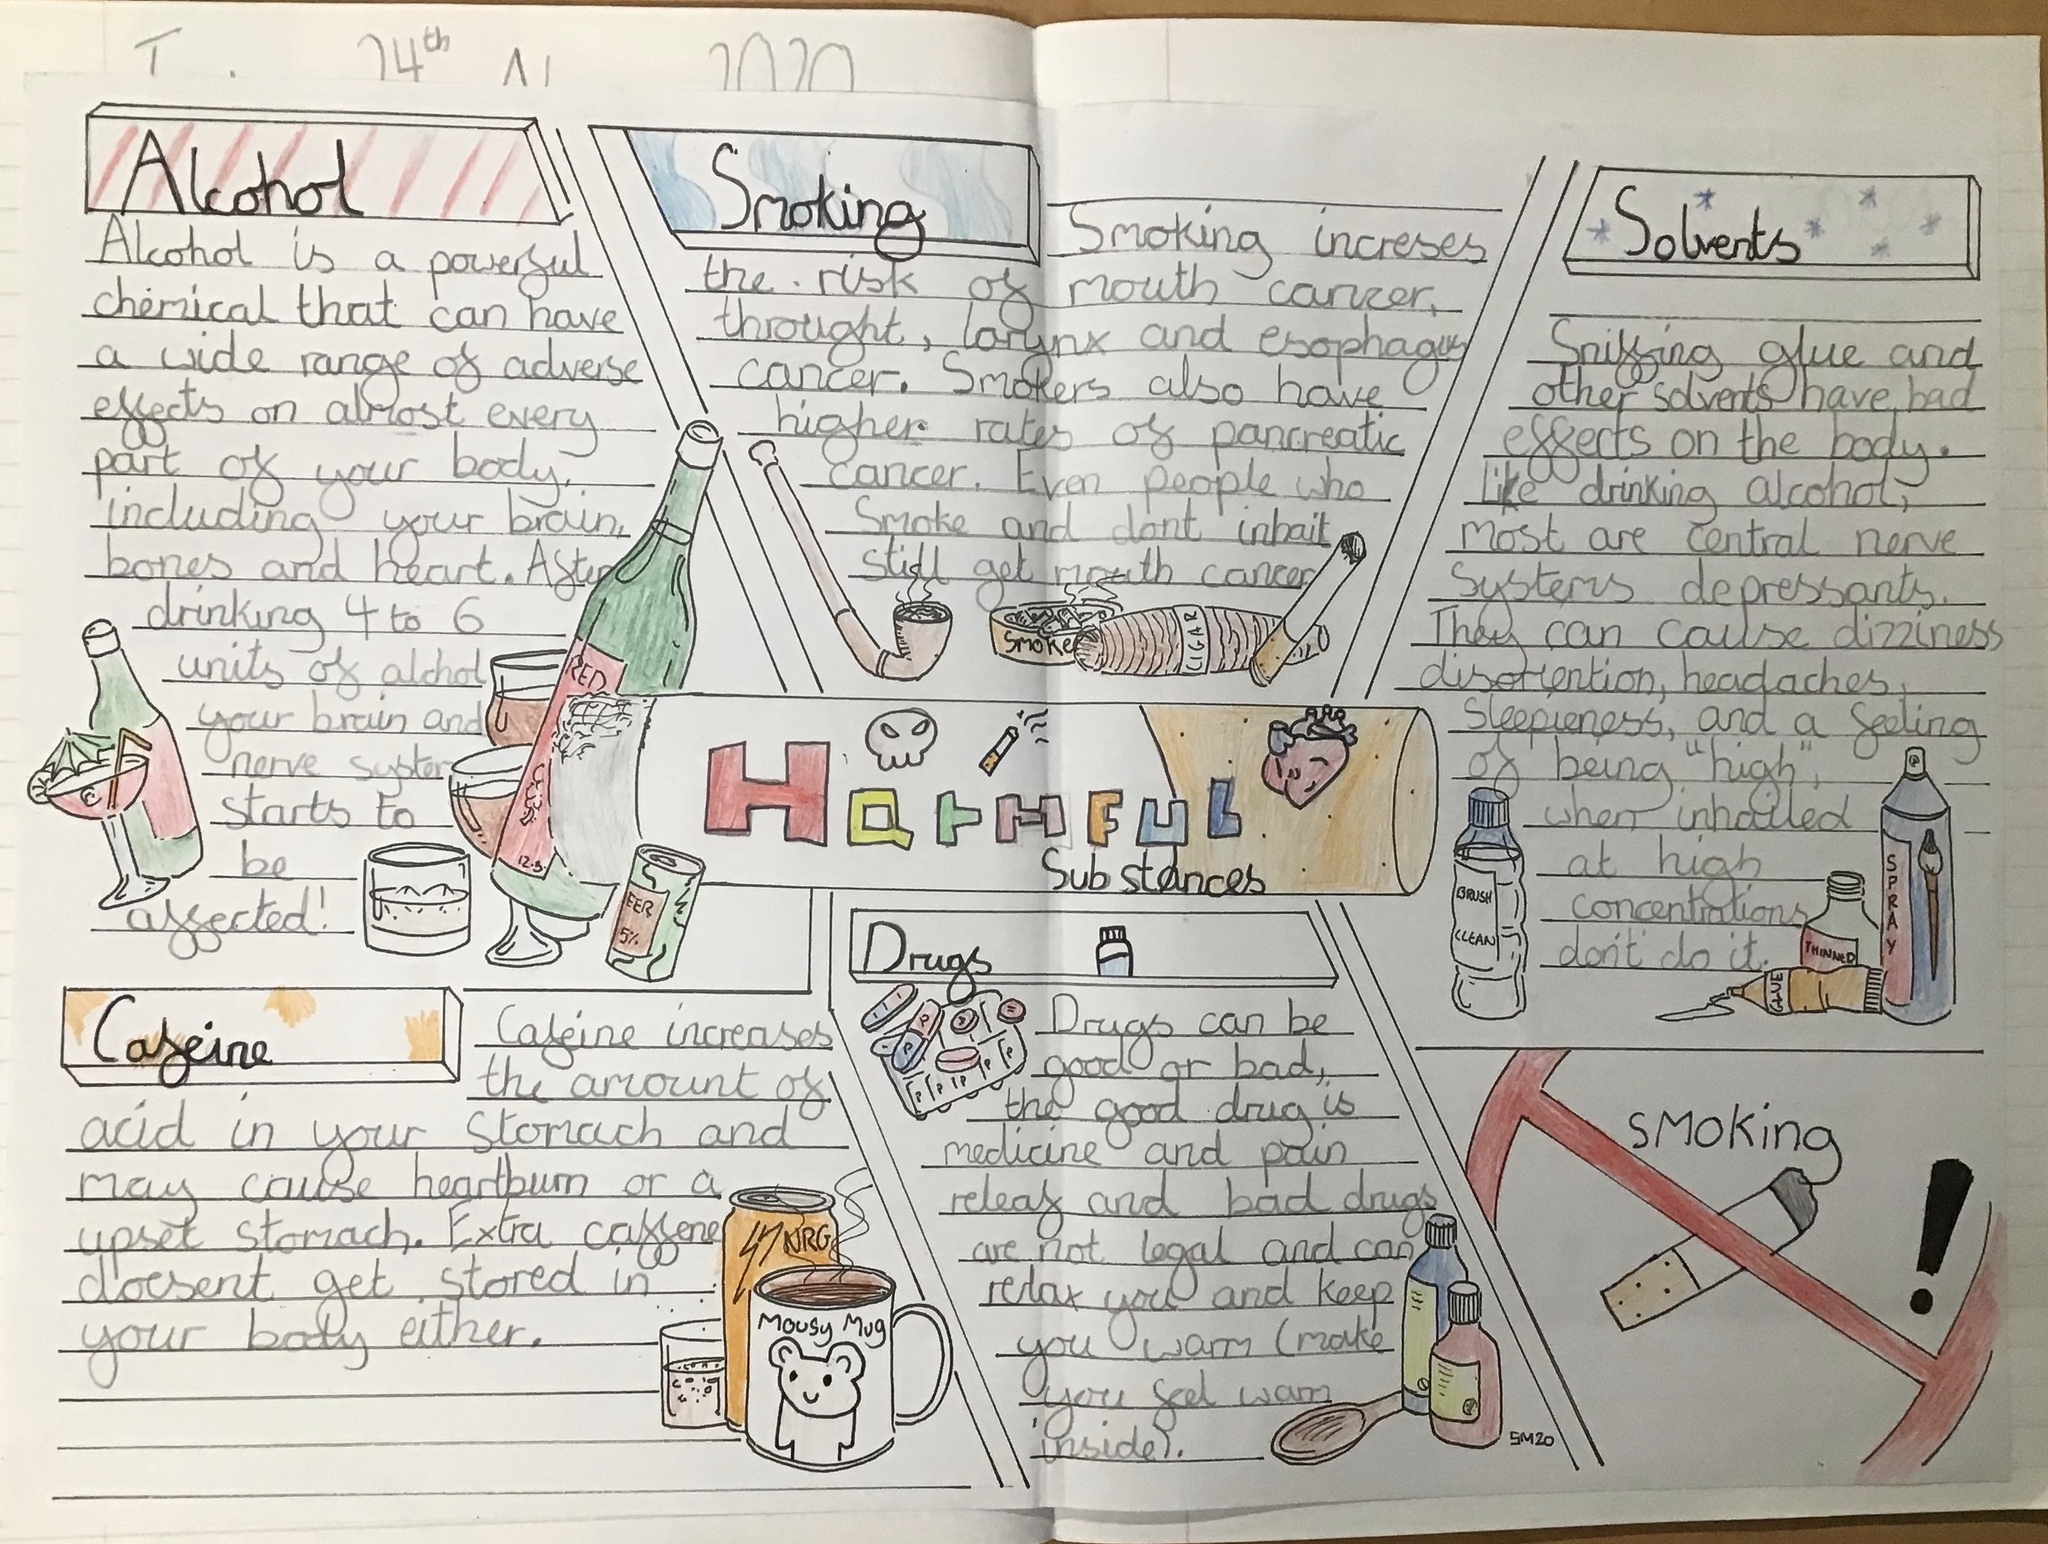 24th 2020
Alcohol
Alcohol is a powerful
chemical that can have
a wide range of adverse
effects on almost every
part of your body,
including your brain,
bones and heart. After
drinking 4 to 6
units of alchol
your brain and
nerve system
starts to
be
affected!
RED
12.5
BEER
5%
Smoking
Smoking increses
the risk of mouth cancer,
throught, larynx and esophagus
cancer. Smokers also have
higher rates of pancreatic
cancer. Even people who
Smoke and dont inhait
still get mouth cancer
Smoke
CIGAR
Harmful
Substances
Solvents
Sniffing glue and
other solvents have bad
effects on the body.
like drinking alcohol,
most are central nerve
systems depressants.
They can cause dizziness
disortention, headaches,
sleepieness, and a feeling
of being "high",
when inhailed
at high
concentrations
don't do it.
BRUSH
CLEAN
THINNER
GLUE
SPRAY
Cafeine
Cafeine increases
the amount of
acid in your stomach and
may cause heartburn or a
upset stomach. Extra caffene
doesent get stored in
your body either.
NRG
Mousy Mug
Drugs
Drugs can be
good or bad,
the good drug is
medicine and pain
releaf and bad drugs
are not legal and can
relax you and keep
you warm (make
you feel warm
inside).
SM20
SMOKing
!